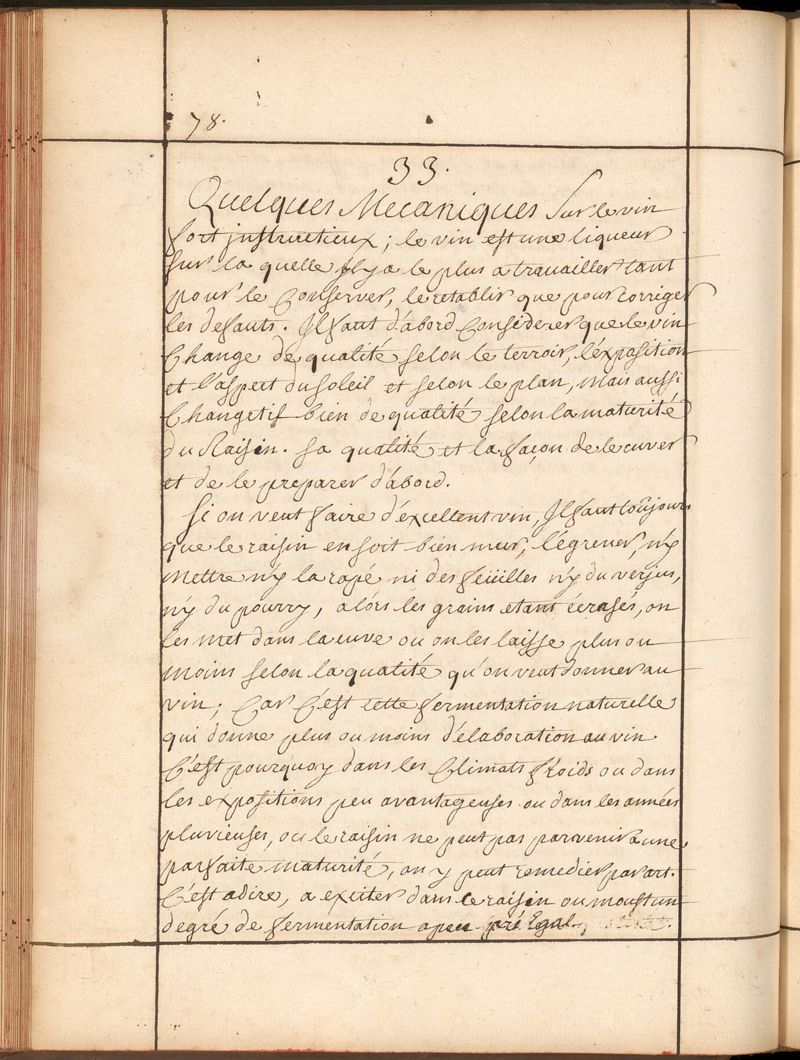 78.
33.
Quelques Mecaniques Sur le vin
fort instructieux; le vin est une liqueur
sur la quelle Il y a le plus a travailler tant
pour le Conserver, le retablir que pour corriger
les defauts. Il faut d'abord Considerer que le vin
Change de qualité selon le terroir, l'exposition
et l'aspect du soleil et selon le plan, mais aussi
Changetil bien de qualité selon la maturité
du Raisin. sa qualité et la façon de le cuver
et de le preparer d'abord.
Si on veut faire d'excellent vin, Il faut toûjours
que le raisin en soit bien meur, l'égrener, n'y
mettre n'y la rapé ni des feüilles n'y du verjus,
n'y du pourry, alors les grains etant écrasés, on
les met dans la cuve ou on les laisse plus ou
moins selon la qualité qu'on veut donner au
vin; Car C'est cette fermentation naturelle
qui donne plus ou moins d'élaboration au vin.
C'est pourquoy dans les Climats froids ou dans
les expositions peu avantageuses ou dans les années
pluvieuses, ou le raisin ne peut pas parvenir a une
parfaite maturité, on y peut remedier par art.
C'est adire, a exciter dans le raisin ou moust un
degré de fermentation a peu pré Egal,